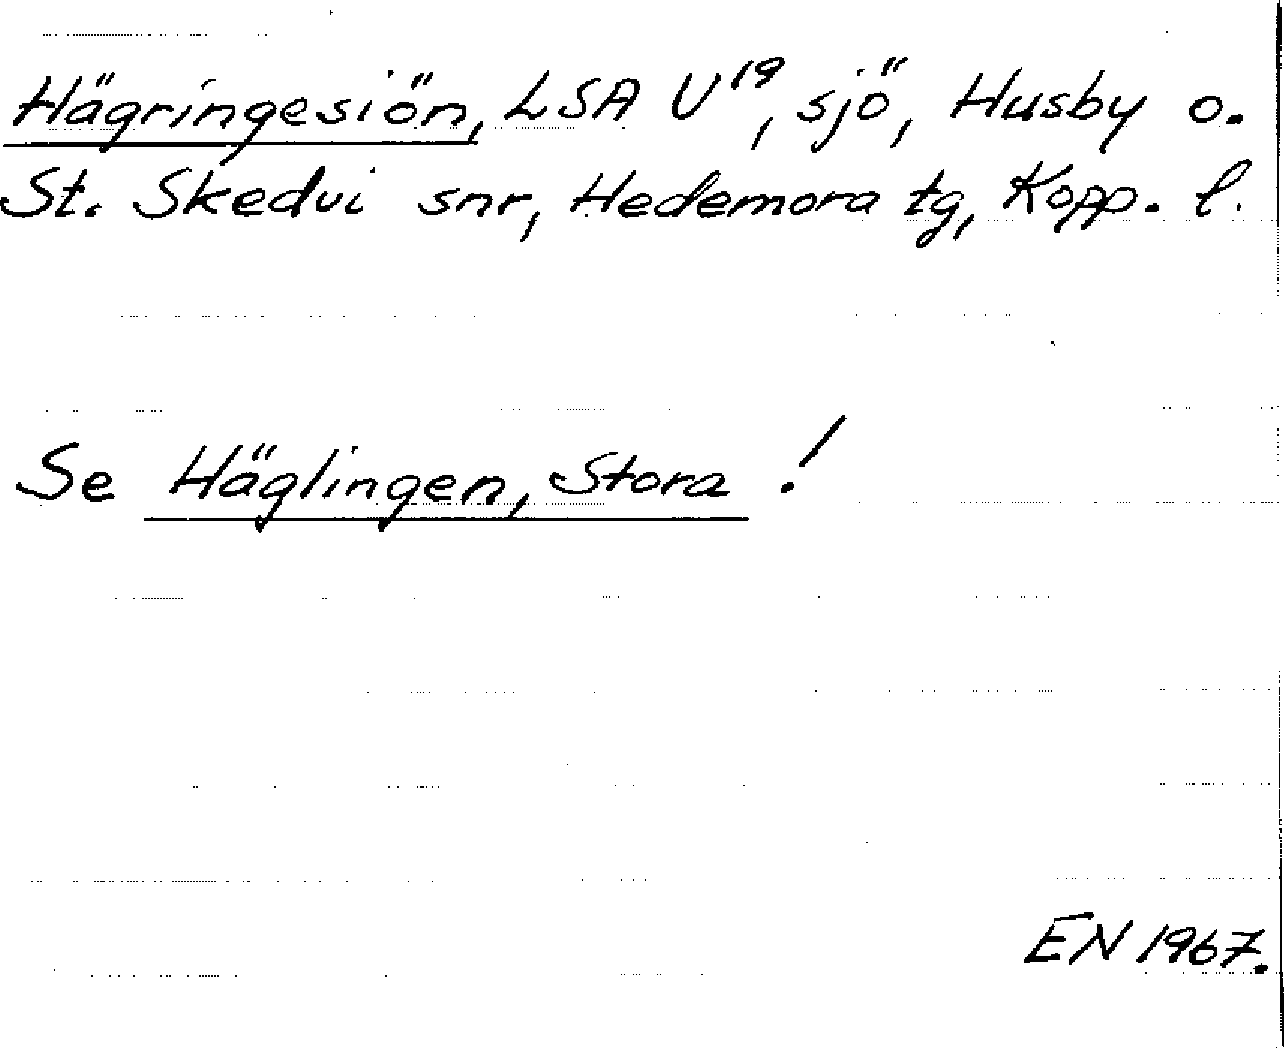 Hägringesiön, LSA U19, sjö, Husby o.
St. Skedvi snr, Hedemora tg, Kopp. l.
Se Häglingen, Stora !
EN 1967.